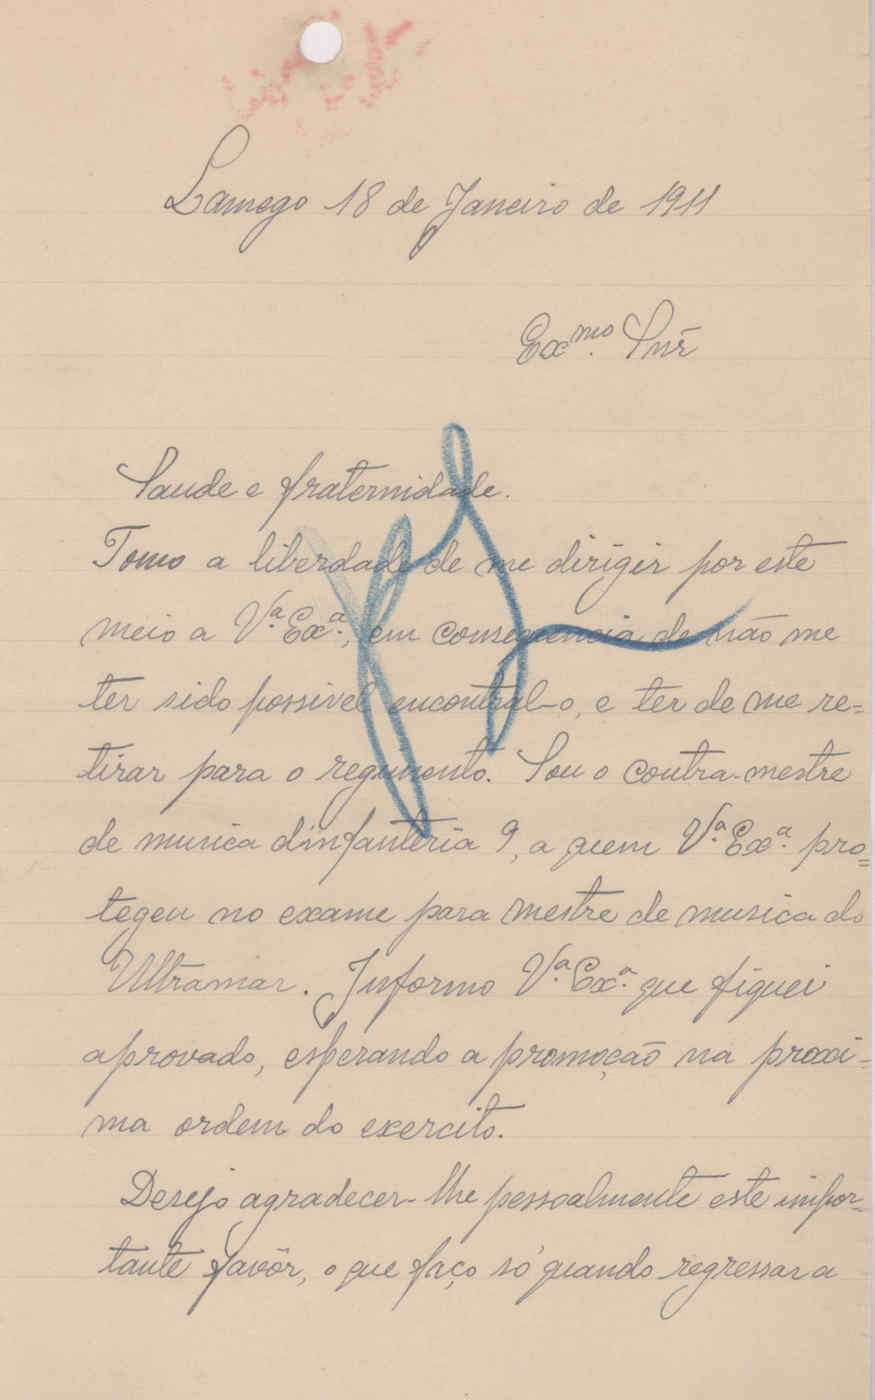 Lamego 18 de Janeiro de 1911
Exmo. Snr
Saude e fraternidade.
Tomo a liberdade de me dirigir por este
meio a Va. Exa., em consequencia de não me
ter sido possivel encontral-o, e ter de me re=
tirar para o regimento. Sou o contra-mestre
de musica d'infanteria 9, a quem Va. Exa. pro=
tegeu no exame para mestre de musica do
Ultramar. Informo Va. Exa. que fiquei
aprovado, esperando a promoção na proxi=
ma ordem do exercito.
Desejo agradecer-lhe pessoalmente este impor=
tante favôr, o que faço só quando regressar a